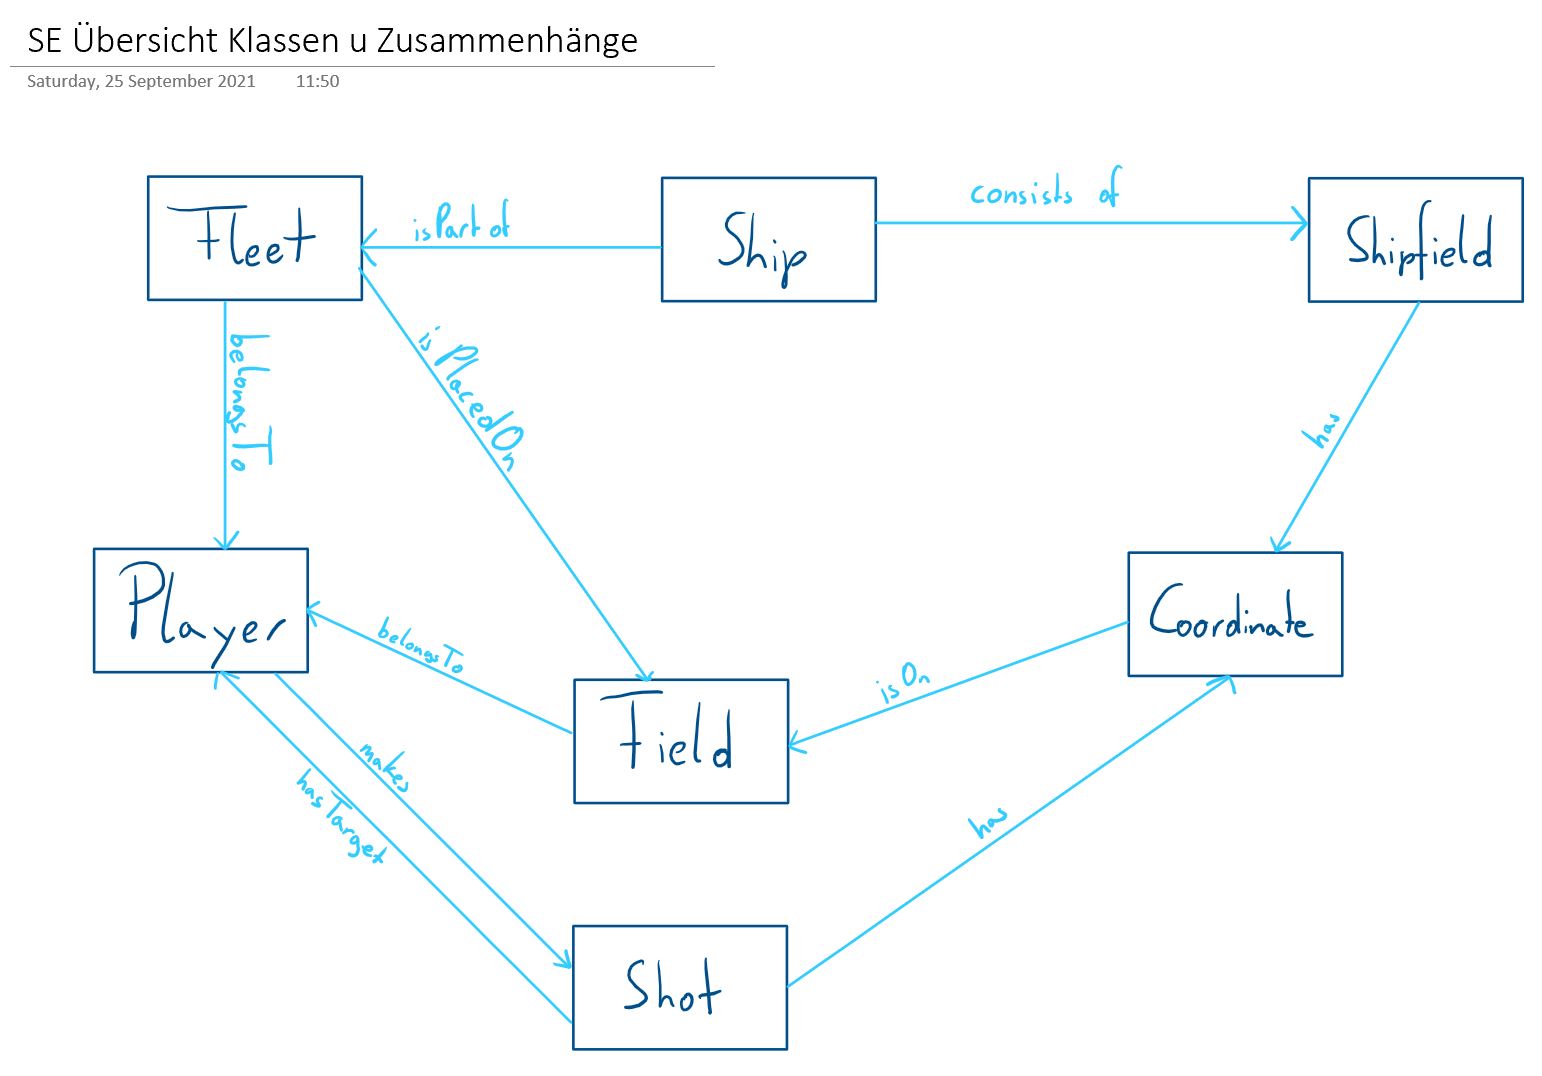 SE Übersicht Klassen u Zusammenhänge
Saturday, 25 September 2021 11:50
Fleet
isPart of
Ship
consists of
Shipfield
belongsTo
isPlacedOn
has
Player
belongsTo
Field
isOn
Coordinate
makes
hasTarget
has
Shot